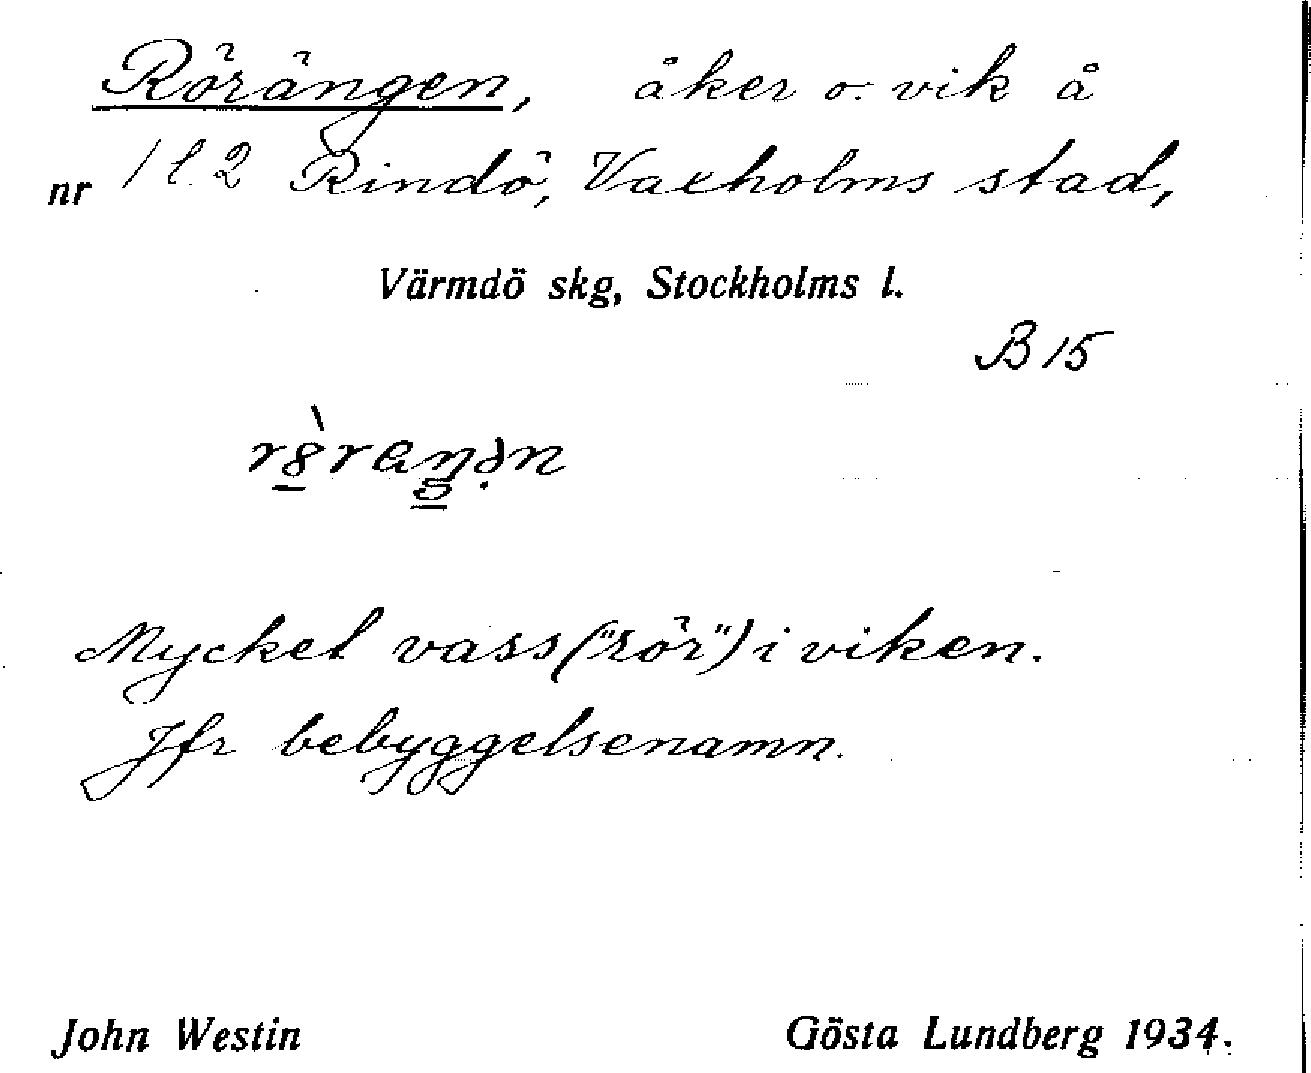 Rörängen, åker o. vik å
nr 1 l. 2 Rindö, Vaxholms stad,
Värmdö skg, Stockholms l.
B 15
Mycket vass ("rör") i viken.
Jfr bebyggelsenamn.
John Westin Gösta Lundberg 1934.